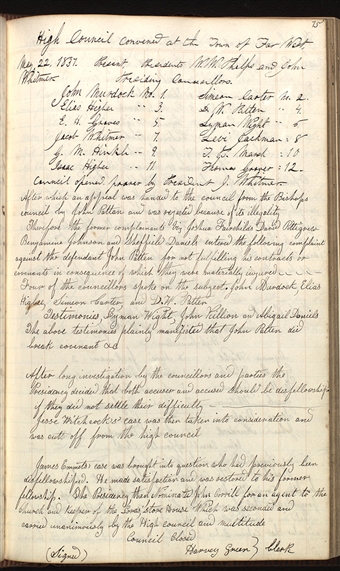 25
High Council convened at the Town of Far West
May 22. 1837. Present Presidents W. W. Phelps and John
Whitmer. Presiding Councellors.
John Murdock No. 1. Simeon Carter No. 2.
Elias Higbee " 3. D. W. Patten " 4
E. H. Groves " 5 Lyman Wight " 6
Jacob Whitmer " 7 Levi Jackman " 8
G. M. Hinkle " 9 T. B. Marsh " 10
Isaac Higbee " 11. Thomas Grover " 12
Council opened prayer by President J. Whitmer.
After which an appeal was handed to the council from the Bishops
council by John Patten and was rejected because of its illegality
Therefore the former complainants viz, Joshua Fairchilds David Pettigrew
Benjamine Johnson and Sheffield Daniels entered the following complaint
against the defendant John Patten for not fulfilling his contracts or
covenants in consequence of which they were materially injured
Four of the councellors spoke on the subject, John Murdock, Elias
Higbee, Simeon Carter and D. W. Patten
Testimonies Lyman Wight, John Killion and Abigail Daniels
The above testimonies plainly manifested that John Patten did
break covenant &c
After long investigation by the councellors and parties the
Presidency decided that both accuser and accused should be disfellowshiped
if they did not settle their difficulty
Jesse Hitchcock's case was then taken into consideration and
was cut off from the high council
James Emmets case was brought into question who had previously been
disfellowshiped. He made satisfaction and was restored to his former
fellowship. The Presidency then nominated John Corrill for an agent to the
church and keeper of the Lords store House Which was seconded and
carried unanimously by the High council and multitude
Council Closed
(Signed) Harvey Green } Clerk